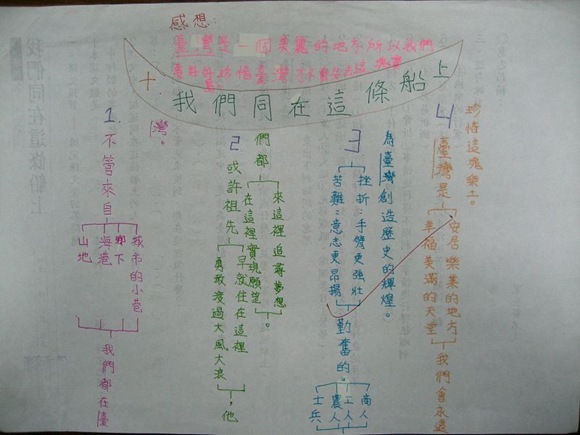 感想：
臺灣是一個美麗的地方所以我們
珍惜臺灣不
十.我們同在這條船上
1.不管來自
城市的小巷
鄉下
海港
山地
我們都在臺
灣。
2
或許祖先
早就住在這裡
勇敢渡過大風大浪，他
們都
來這裡追尋夢想
在這裡實現願望。
3
挫折：手臂更強壯
苦難：意志更昂揚
勤奮的
商人
工人
農人
士兵
為臺灣創造歷史的輝煌。
4
臺灣是
安居樂業的地方
幸福美滿的天堂
我們會永遠
珍惜這塊樂土。